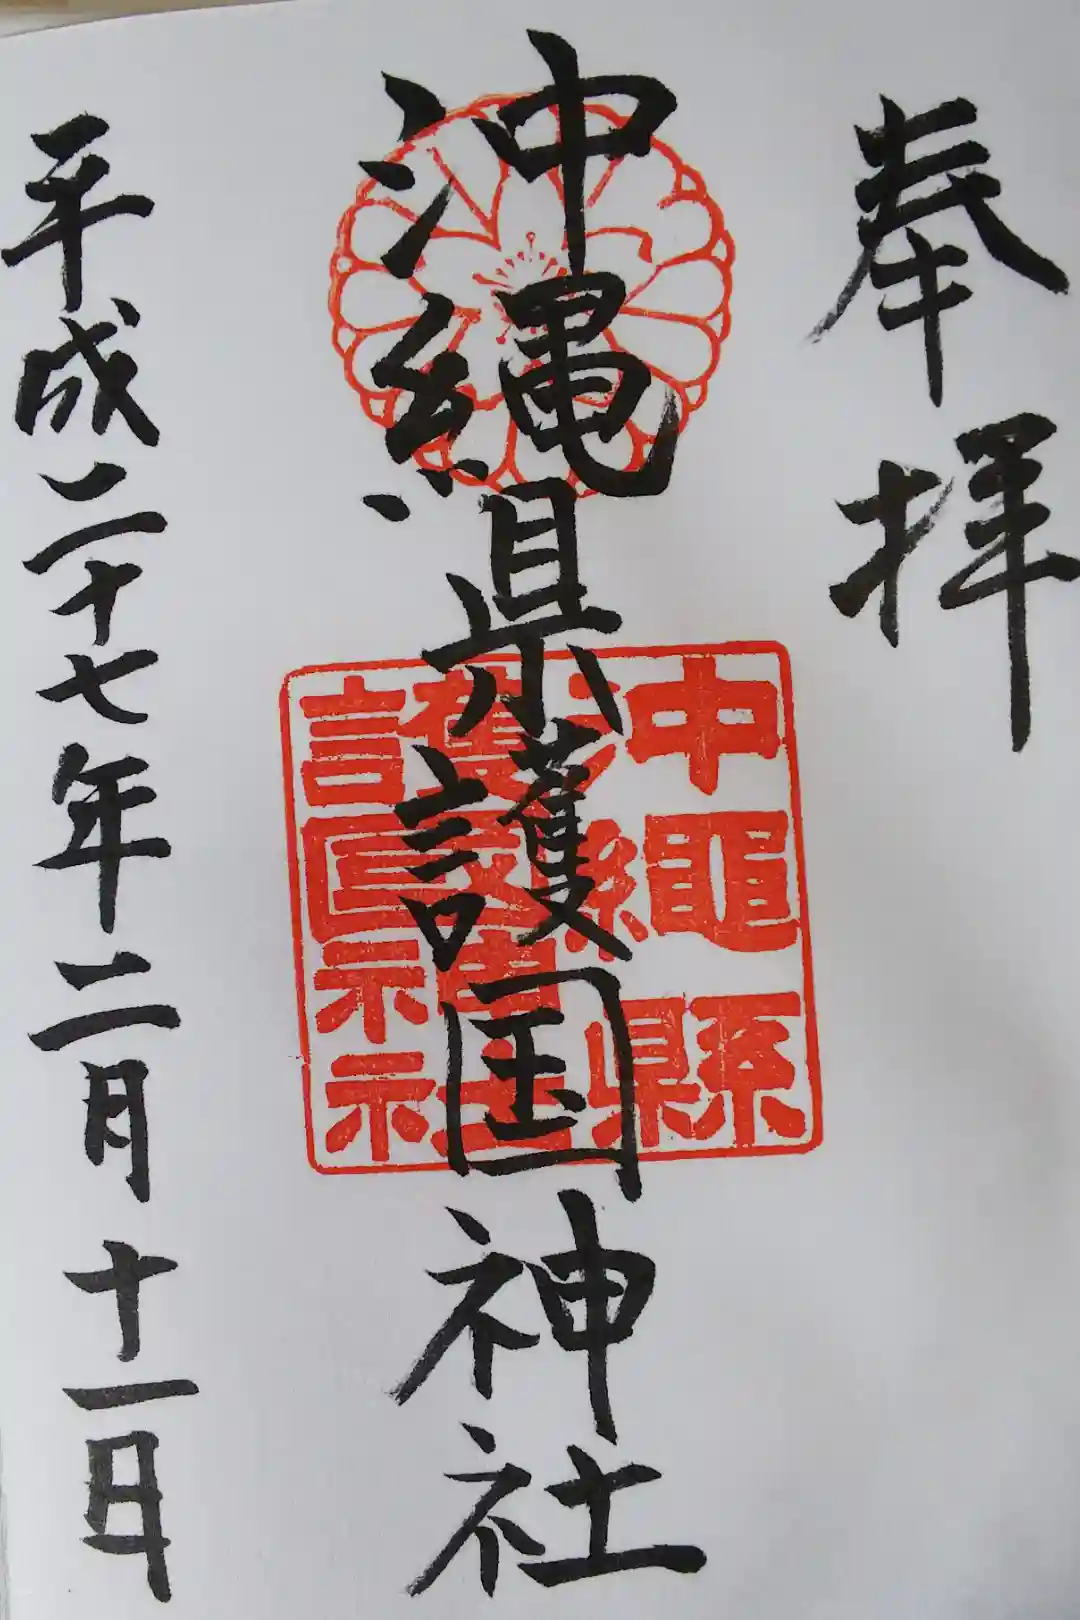 奉拝
沖縄県護国神社
沖繩縣護國神社
平成二十七年二月十一日